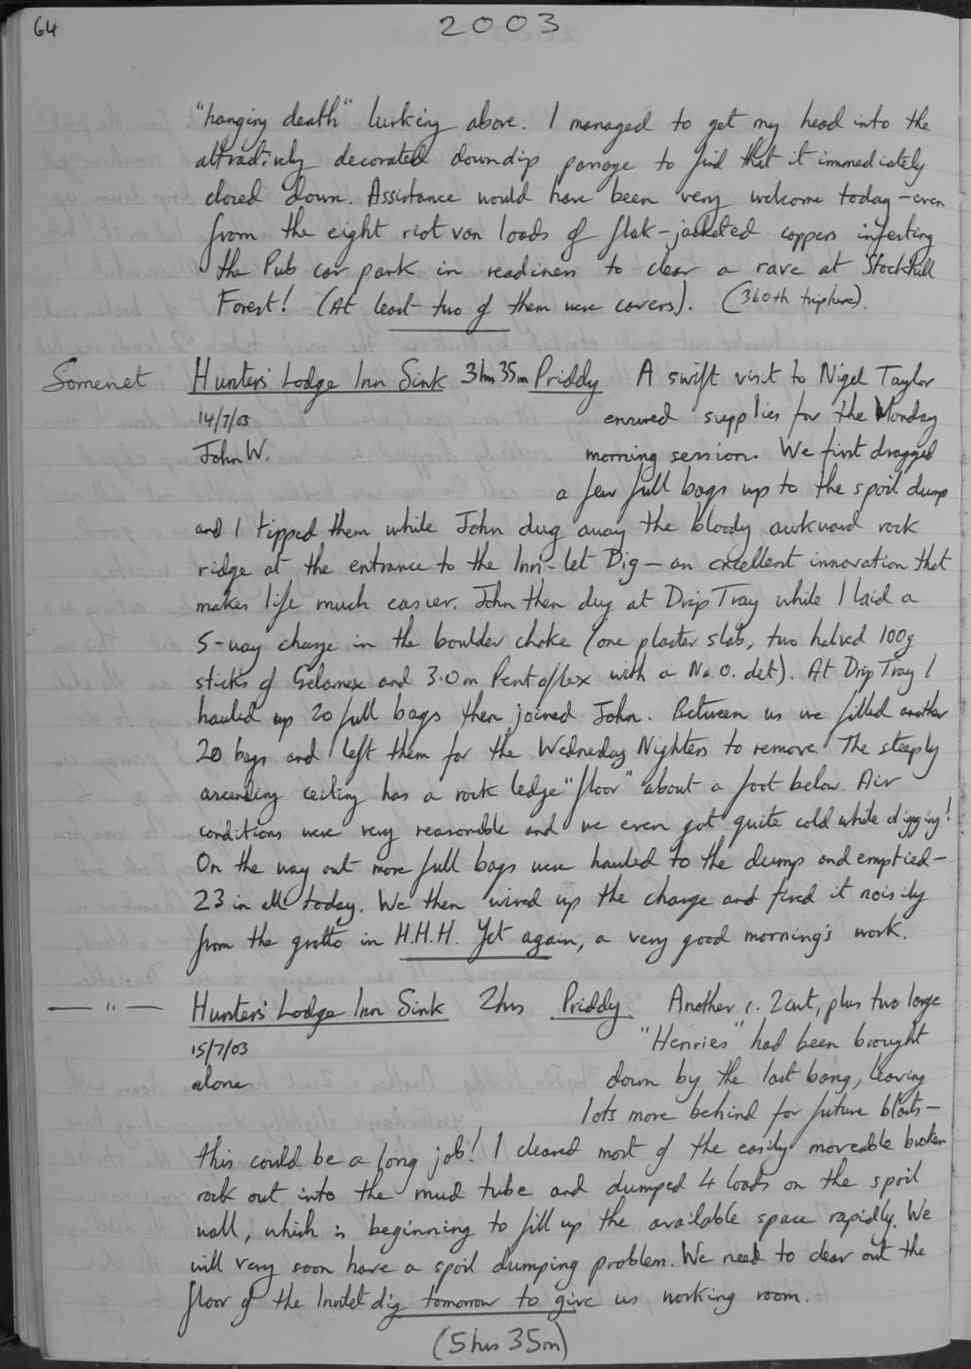 64
2003
"hanging death" lurking above. I managed to get my head into the
attractively decorated downdip passage to find that it immediately
closed down. Assistance would have been very welcome today - even
from the eight riot van loads of flak-jacketed coppers infesting
the Pub car park in readiness to clear a rave at Stockhill
Forest! (At least two of them were cavers). (360th trip here).
Somerset Hunters' Lodge Inn Sink 3hrs 35m Priddy A swift visit to Nigel Taylor
14/7/03 ensured supplies for the Monday
John W. morning session. We first dragged
a few full bags up to the spoil dump
and I tipped them while John dug away the bloody awkward rock
ridge at the entrance to the Inn-let Dig - an excellent innovation that
makes life much easier. John then dug at Drip Tray while I laid a
5-way charge in the boulder choke (one plaster slab, two halved 100g
sticks of Gelamex and 3.0m Pentaflex with a No. 0. det). At Drip Tray I
hauled up 20 full bags then joined John. Between us we filled another
20 bags and left them for the Wednesday Nighters to remove. The steeply
ascending ceiling has a rock ledge "floor" about a foot below. Air
conditions were very reasonable and we even got quite cold while digging!
On the way out more full bags were hauled to the dump and emptied -
23 in all today. We then wired up the charge and fired it noisily
from the grotto in H.H.H. Yet again, a very good morning's work.
— " — Hunters' Lodge Inn Sink 2hrs Priddy Another c. 2cwt, plus two large
15/7/03 "Henries" had been brought
alone down by the last bang, leaving
lots more behind for future blasts -
this could be a long job! I cleared most of the easily moveable broken
rock out into the mud tube and dumped 4 loads on the spoil
wall, which is beginning to fill up the available space rapidly. We
will very soon have a spoil dumping problem. We need to clear out the
floor of the Innlet dig tomorrow to give us working room.
(5hrs 35m)